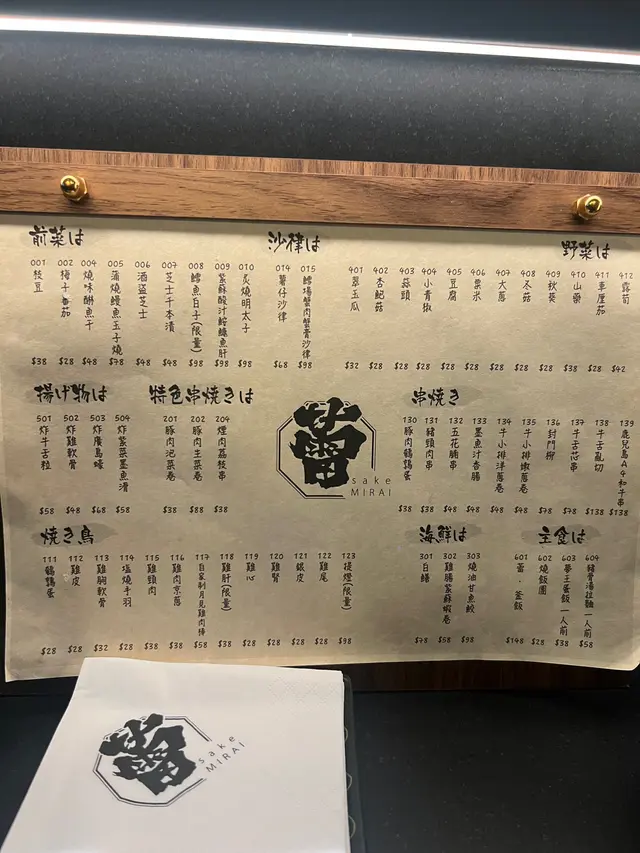 前菜は
001 枝豆 $38
002 梅子番茄 $28
004 燒味酥魚干 $48
005 蒲燒鰻魚玉子燒 $78
006 酒盜芝士 $48
007 芝士千本漬 $48
008 鱈魚白子(限量) $98
009 紫蘇酸汁鮟鱇魚肝 $98
010 炙燒明太子 $98
沙律は
014 薯仔沙律 $68
015 鱈場蟹肉蟹膏沙律 $98
野菜は
401 翠玉瓜 $32
402 杏鮑菇 $28
403 蒜頭 $28
404 小青椒 $28
405 豆腐 $28
406 粟米 $28
407 大蔥 $28
408 冬菇 $28
409 秋葵 $28
410 山藥 $38
411 車厘茄 $28
412 露筍 $42
揚げ物は
501 炸牛舌粒 $58
502 炸雞軟骨 $48
503 炸廣島蠔 $68
504 炸紫菜墨魚滑 $58
特色串焼きは
201 豚肉泡菜卷 $38
202 豚肉生菜卷 $88
204 煙肉荔枝串 $38
蕾
sake
MIRAI
串焼き
130 豚肉鵪鶉蛋 $38
131 豬頸肉串 $38
132 五花腩串 $48
133 墨魚汁香腸 $48
134 牛小排洋蔥卷 $48
135 牛小排嫩蔥卷 $48
136 封門柳
137 牛舌芯串
138 牛舌亂切 $138
139 鹿兒島A4和牛串 $138
焼き鳥
111 鵪鶉蛋 $28
112 雞皮 $28
113 雞胸軟骨 $32
114 塩燒手羽 $28
115 雞頸肉 $38
116 雞肉京蔥 $38
117 自家制月見雞肉棒 $58
118 雞肝(限量) $38
119 雞心 $28
120 雞腎 $28
121 銀皮 $28
122 雞尾 $28
123 提燈(限量) $98
海鮮は
301 白鱔 $78
302 雞腸紫蘇蝦卷 $58
303 燒油甘魚鮫 $98
主食は
601 蕾·釜飯 $148
602 燒飯團 $28
603 夢王蛋飯 一人前 $38
604 豬骨湯拉麵 一人前 $58
蕾
sake
MIRAI